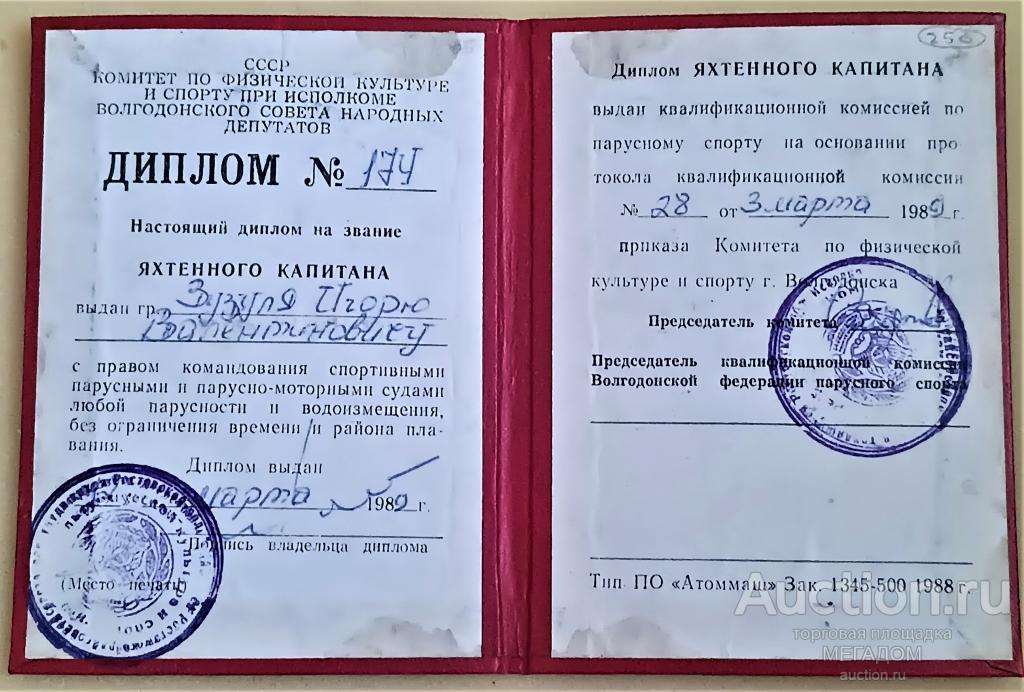 СССР
КОМИТЕТ ПО ФИЗИЧЕСКОЙ КУЛЬТУРЕ
И СПОРТУ ПРИ ИСПОЛКОМЕ
ВОЛГОДОНСКОГО СОВЕТА НАРОДНЫХ
ДЕПУТАТОВ
ДИПЛОМ № 174
Настоящий диплом на звание
ЯХТЕННОГО КАПИТАНА
выдан гр. Зузуля Игорю
Валентиновичу
с правом командования спортивными
парусными и парусно-моторными судами
любой парусности и водоизмещения,
без ограничения времени и района пла-
вания.
Диплом выдан
марта 1989 г.
Подпись владельца диплома
(Место печати)
256
Диплом ЯХТЕННОГО КАПИТАНА
выдан квалификационной комиссией по
парусному спорту на основании про
токола квалификационной комиссии
№ 28 от 3 марта 1989 г.
приказа Комитета по физической
культуре и спорту г. Волгодонска
Председатель комитета
Председатель квалификационной комиссии
Волгодонской федерации парусного спорта
Тип ПО «Атоммаш» Зак. 1345-500 1988 г.
Auction.ru
торговая площадка
МЕГАДОМ
auction.ru